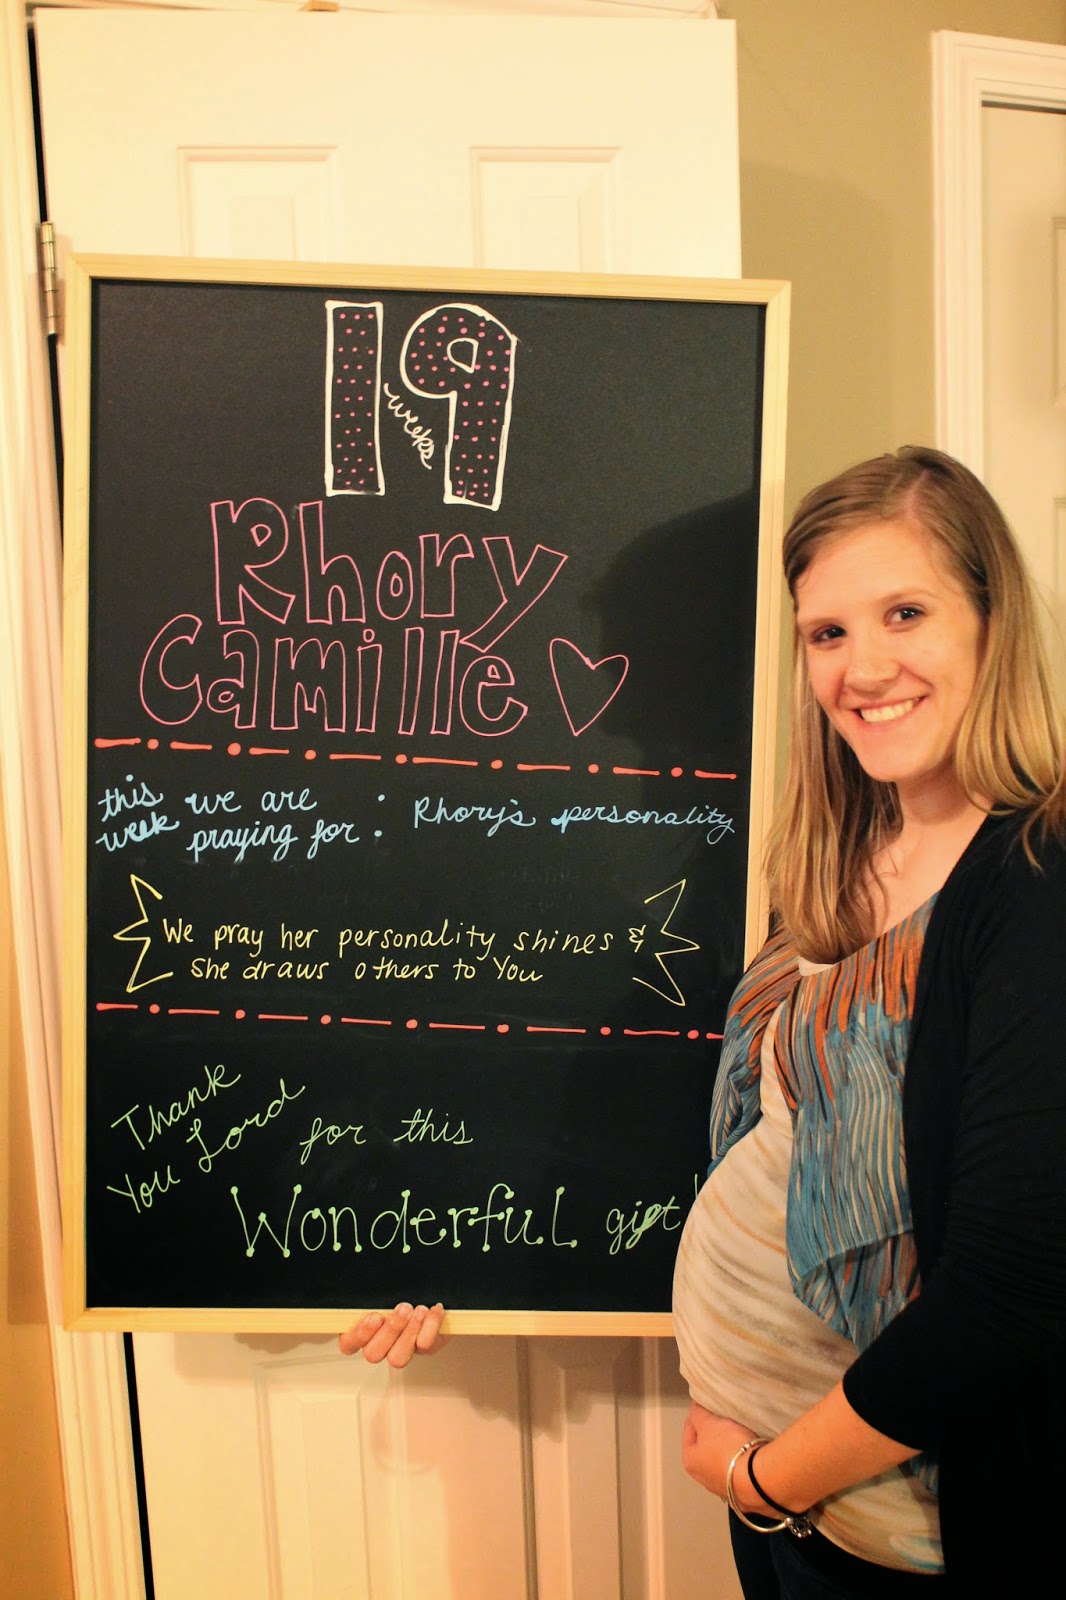 19
weeks
Rhory
Camille
this week we are praying for : Rhory's personality
We pray her personality shines &
she draws others to You
Thank
You Lord for this
Wonderful gift!